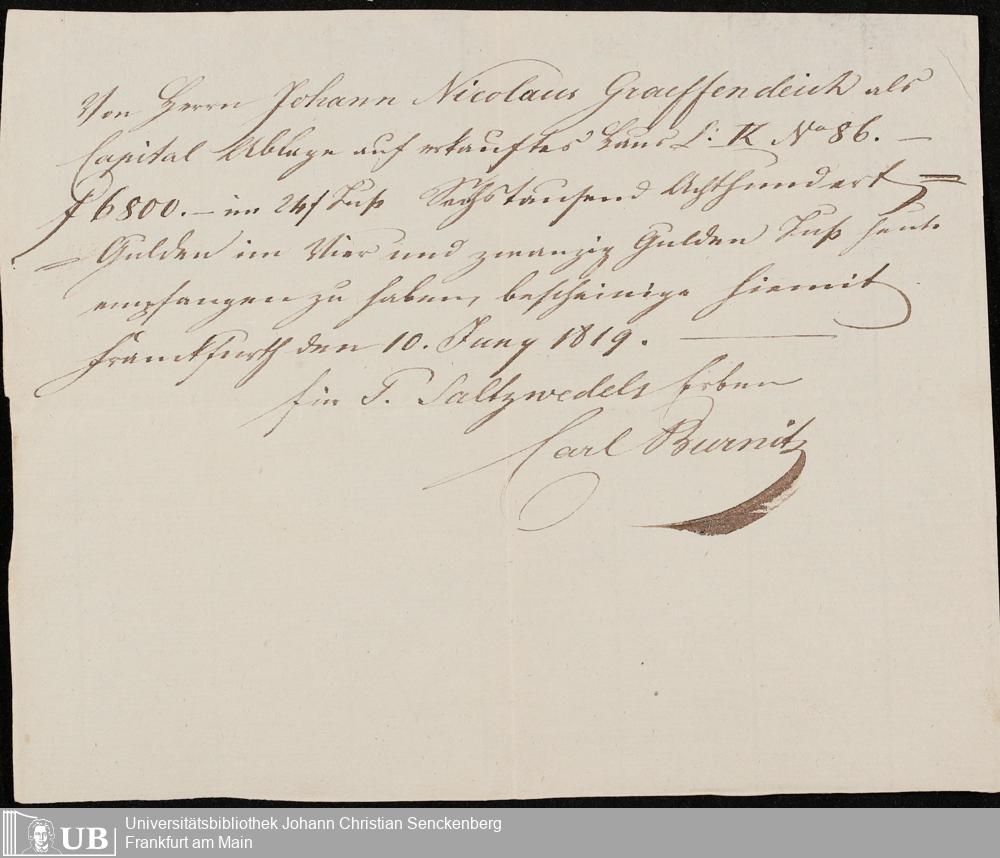 Von Herrn Johann Nicolaus Graeffendeich als
Capital Ablage auf erkauftes Haus L: K No 86. —
f 6800. — im 24f Fuß Sechstausend Achthundert =
= Gulden im Vier und zwanzig Gulden Fuß heute
empfangen zu haben, bescheinige hiemit
Franckfurth den 10. Juny 1819. —
für P. Saltzwedels Erben
Carl Burnitz
UB
Universitätsbibliothek Johann Christian Senckenberg
Frankfurt am Main